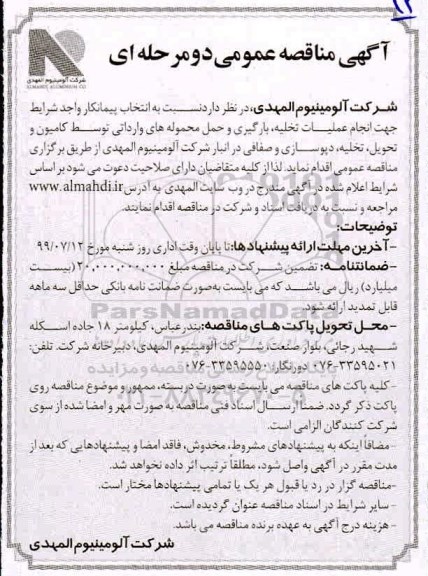 شرکت آلومینیوم المهدی
ALMAHDI ALUMINIUM CO.
آگهی مناقصه عمومی دو مرحله ای
شرکت آلومینیوم المهدی، در نظر دارد نسبت به انتخاب پیمانکار واجد شرایط
جهت انجام عملیات تخلیه، بارگیری و حمل محموله های وارداتی توسط کامیون و
تحویل، تخلیه، دپوسازی و صفافی در انبار شرکت آلومینیوم المهدی از طریق برگزاری
مناقصه عمومی اقدام نماید. لذا از کلیه متقاضیان دارای صلاحیت دعوت می شود بر اساس
شرایط اعلام شده در آگهی مندرج در وب سایت المهدی به آدرس www.almahdi.ir
مراجعه و نسبت به دریافت اسناد و شرکت در مناقصه اقدام نمایند.
توضیحات:
-آخرین مهلت ارائه پیشنهادها: تا پایان وقت اداری روز شنبه مورخ ۹۹/۰۷/۱۲
-ضمانتنامه: تضمین شرکت در مناقصه مبلغ ۲۰,۰۰۰,۰۰۰,۰۰۰ (بیست
میلیارد) ریال می باشد که می بایست به صورت ضمانت نامه بانکی حداقل سه ماهه
قابل تمدید ارائه شود.
-محل تحویل پاکت های مناقصه: بندرعباس، کیلومتر ۱۸ جاده اسکله
شهید رجائی، بلوار صنعت، شرکت آلومینیوم المهدی، دبیرخانه شرکت. تلفن:
۰۷۶-۳۳۵۹۵۰۲۱ دورنگار: ۰۷۶-۳۳۵۹۵۵۵۰
-کلیه پاکت های مناقصه می بایست به صورت دربسته، ممهور و موضوع مناقصه روی
پاکت ذکر گردد. ضمناً ارسال اسناد فنی مناقصه به صورت مهر و امضا شده از سوی
شرکت کنندگان الزامی است.
-مضافاً اینکه به پیشنهادهای مشروط، مخدوش، فاقد امضا و پیشنهادهایی که بعد از
مدت مقرر در آگهی واصل شود، مطلقاً ترتیب اثر داده نخواهد شد.
-مناقصه گزار در رد یا قبول هر یک یا تمامی پیشنهادها مختار است.
- سایر شرایط در اسناد مناقصه عنوان گردیده است.
- هزینه درج آگهی به عهده برنده مناقصه می باشد.
شرکت آلومینیوم المهدی
ParsNamadData